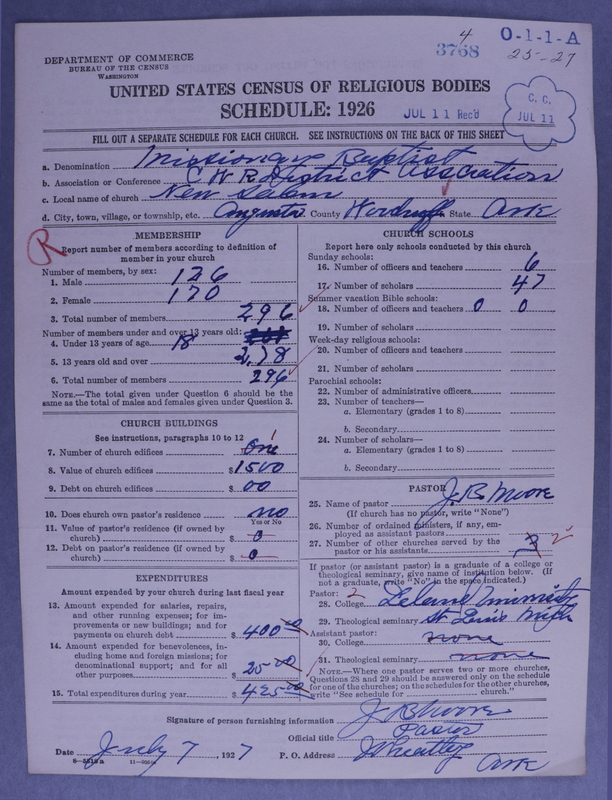 4
3768
O-1-1-A
25-27
DEPARTMENT OF COMMERCE
BUREAU OF THE CENSUS
WASHINGTON
UNITED STATES CENSUS OF RELIGIOUS BODIES
SCHEDULE: 1926
JUL 11 Rec'd
C. C.
JUL 11
FILL OUT A SEPARATE SCHEDULE FOR EACH CHURCH. SEE INSTRUCTIONS ON THE BACK OF THIS SHEET
a. Denomination Missionary Baptist
b. Association or Conference C.W.R. District Association
c. Local name of church New Salem
d. City, town, village, or township, etc. Augusta County Woodruff State Ark
R
MEMBERSHIP
Report number of members according to definition of
member in your church
Number of members, by sex:
1. Male 126
2. Female 170
3. Total number of members 296
Number of members under and over 13 years old:
4. Under 13 years of age 18
5. 13 years old and over 278
6. Total number of members 296
NOTE.—The total given under Question 6 should be the
same as the total of males and females given under Question 3.
CHURCH BUILDINGS
See instructions, paragraphs 10 to 12
7. Number of church edifices one 1
8. Value of church edifices $1500
9. Debt on church edifices $00
10. Does church own pastor's residence? no
Yes or No
11. Value of pastor's residence (if owned by
church) $0
12. Debt on pastor's residence (if owned by
church) $0
EXPENDITURES
Amount expended by your church during last fiscal year
13. Amount expended for salaries, repairs,
and other running expenses; for im-
provements or new buildings; and for
payments on church debt $400.00
14. Amount expended for benevolences,
including home and foreign missions; for
denominational support; and for all
other purposes $25.00
15. Total expenditures during year $425.00
CHURCH SCHOOLS
Report here only schools conducted by this church
Sunday schools:
16. Number of officers and teachers 6
17. Number of scholars 47
Summer vacation Bible schools:
18. Number of officers and teachers 0 0
19. Number of scholars
Week-day religious schools:
20. Number of officers and teachers
21. Number of scholars
Parochial schools:
22. Number of administrative officers
23. Number of teachers—
a. Elementary (grades 1 to 8)
b. Secondary
24. Number of scholars—
a. Elementary (grades 1 to 8)
b. Secondary
PASTOR
25. Name of pastor J. B. Moore
(If church has no pastor, write "None")
26. Number of ordained ministers, if any, em-
ployed as assistant pastors
27. Number of other churches served by the
pastor or his assistants 3 2
If pastor (or assistant pastor) is a graduate of a college or
theological seminary, give name of institution below. (If
not a graduate, write "No" in the space indicated.)
Pastor: 2
28. College Leland University
29. Theological seminary St Louis
Assistant pastor:
30. College none
31. Theological seminary none
NOTE.—Where one pastor serves two or more churches,
Questions 28 and 29 should be answered only on the schedule
for one of the churches; on the schedules for the other churches,
write "See schedule for church."
Signature of person furnishing information J B Moore
Official title Pastor
Date July 7, 1927 P. O. Address Wheatley
Ark
8-5313a 11-9204a